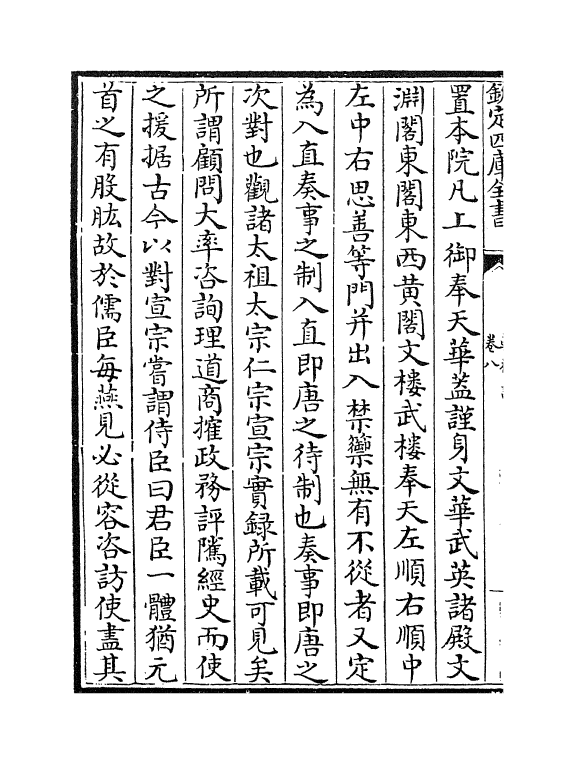 欽定四庫全書
卷八
置本院凡上御奉天華蓋謹身文華武英諸殿文
淵閣東閣東西黄閣文樓武樓奉天左順右順中
左中右思善等門并出入禁籞無有不從者又定
為入直奏事之制入直即唐之待制也奏事即唐之
次對也觀諸太祖太宗仁宗宣宗實録所載可見矣
所謂顧問大率咨詢理道商搉政務評隲經史而使
之援据古今以對宣宗嘗謂侍臣曰君臣一體猶元
首之有股肱故於儒臣每燕見必從容咨訪使盡其